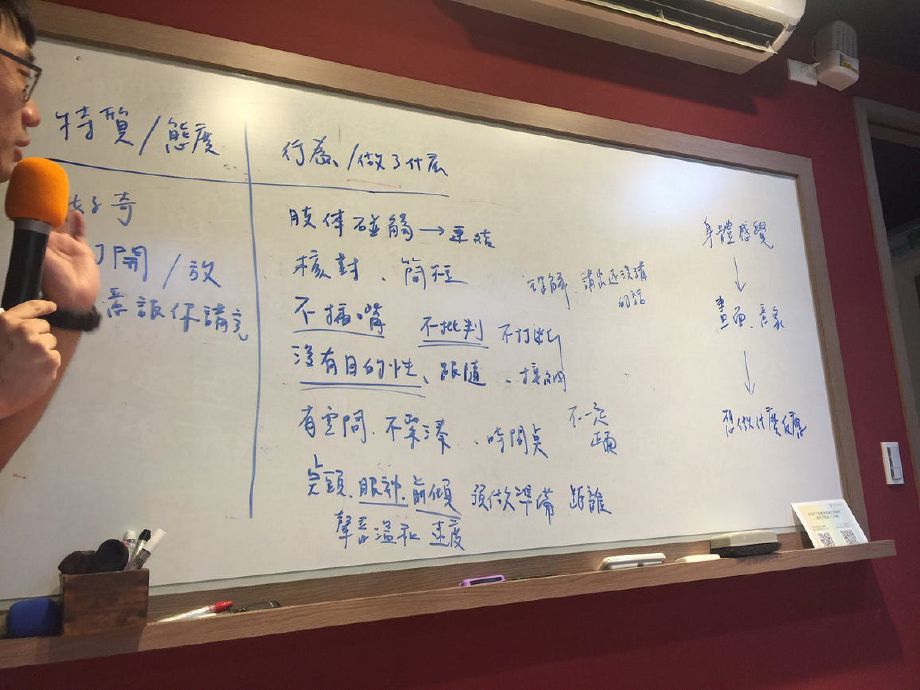 特質/態度
好奇
打開/放
意讓你講完
行為/做了什麼
肢体碰觸→連結
核對、簡短
不插嘴 不批判 不打斷
沒有目的性、跟隨、
有空間、不緊湊、時間
不一定
點頭、眼神、前傾 預做準備 距離
聲音溫和 速度
了解、講出還沒講
的話
身體感覺
↓
畫面、意象
↓
想做什麼反應